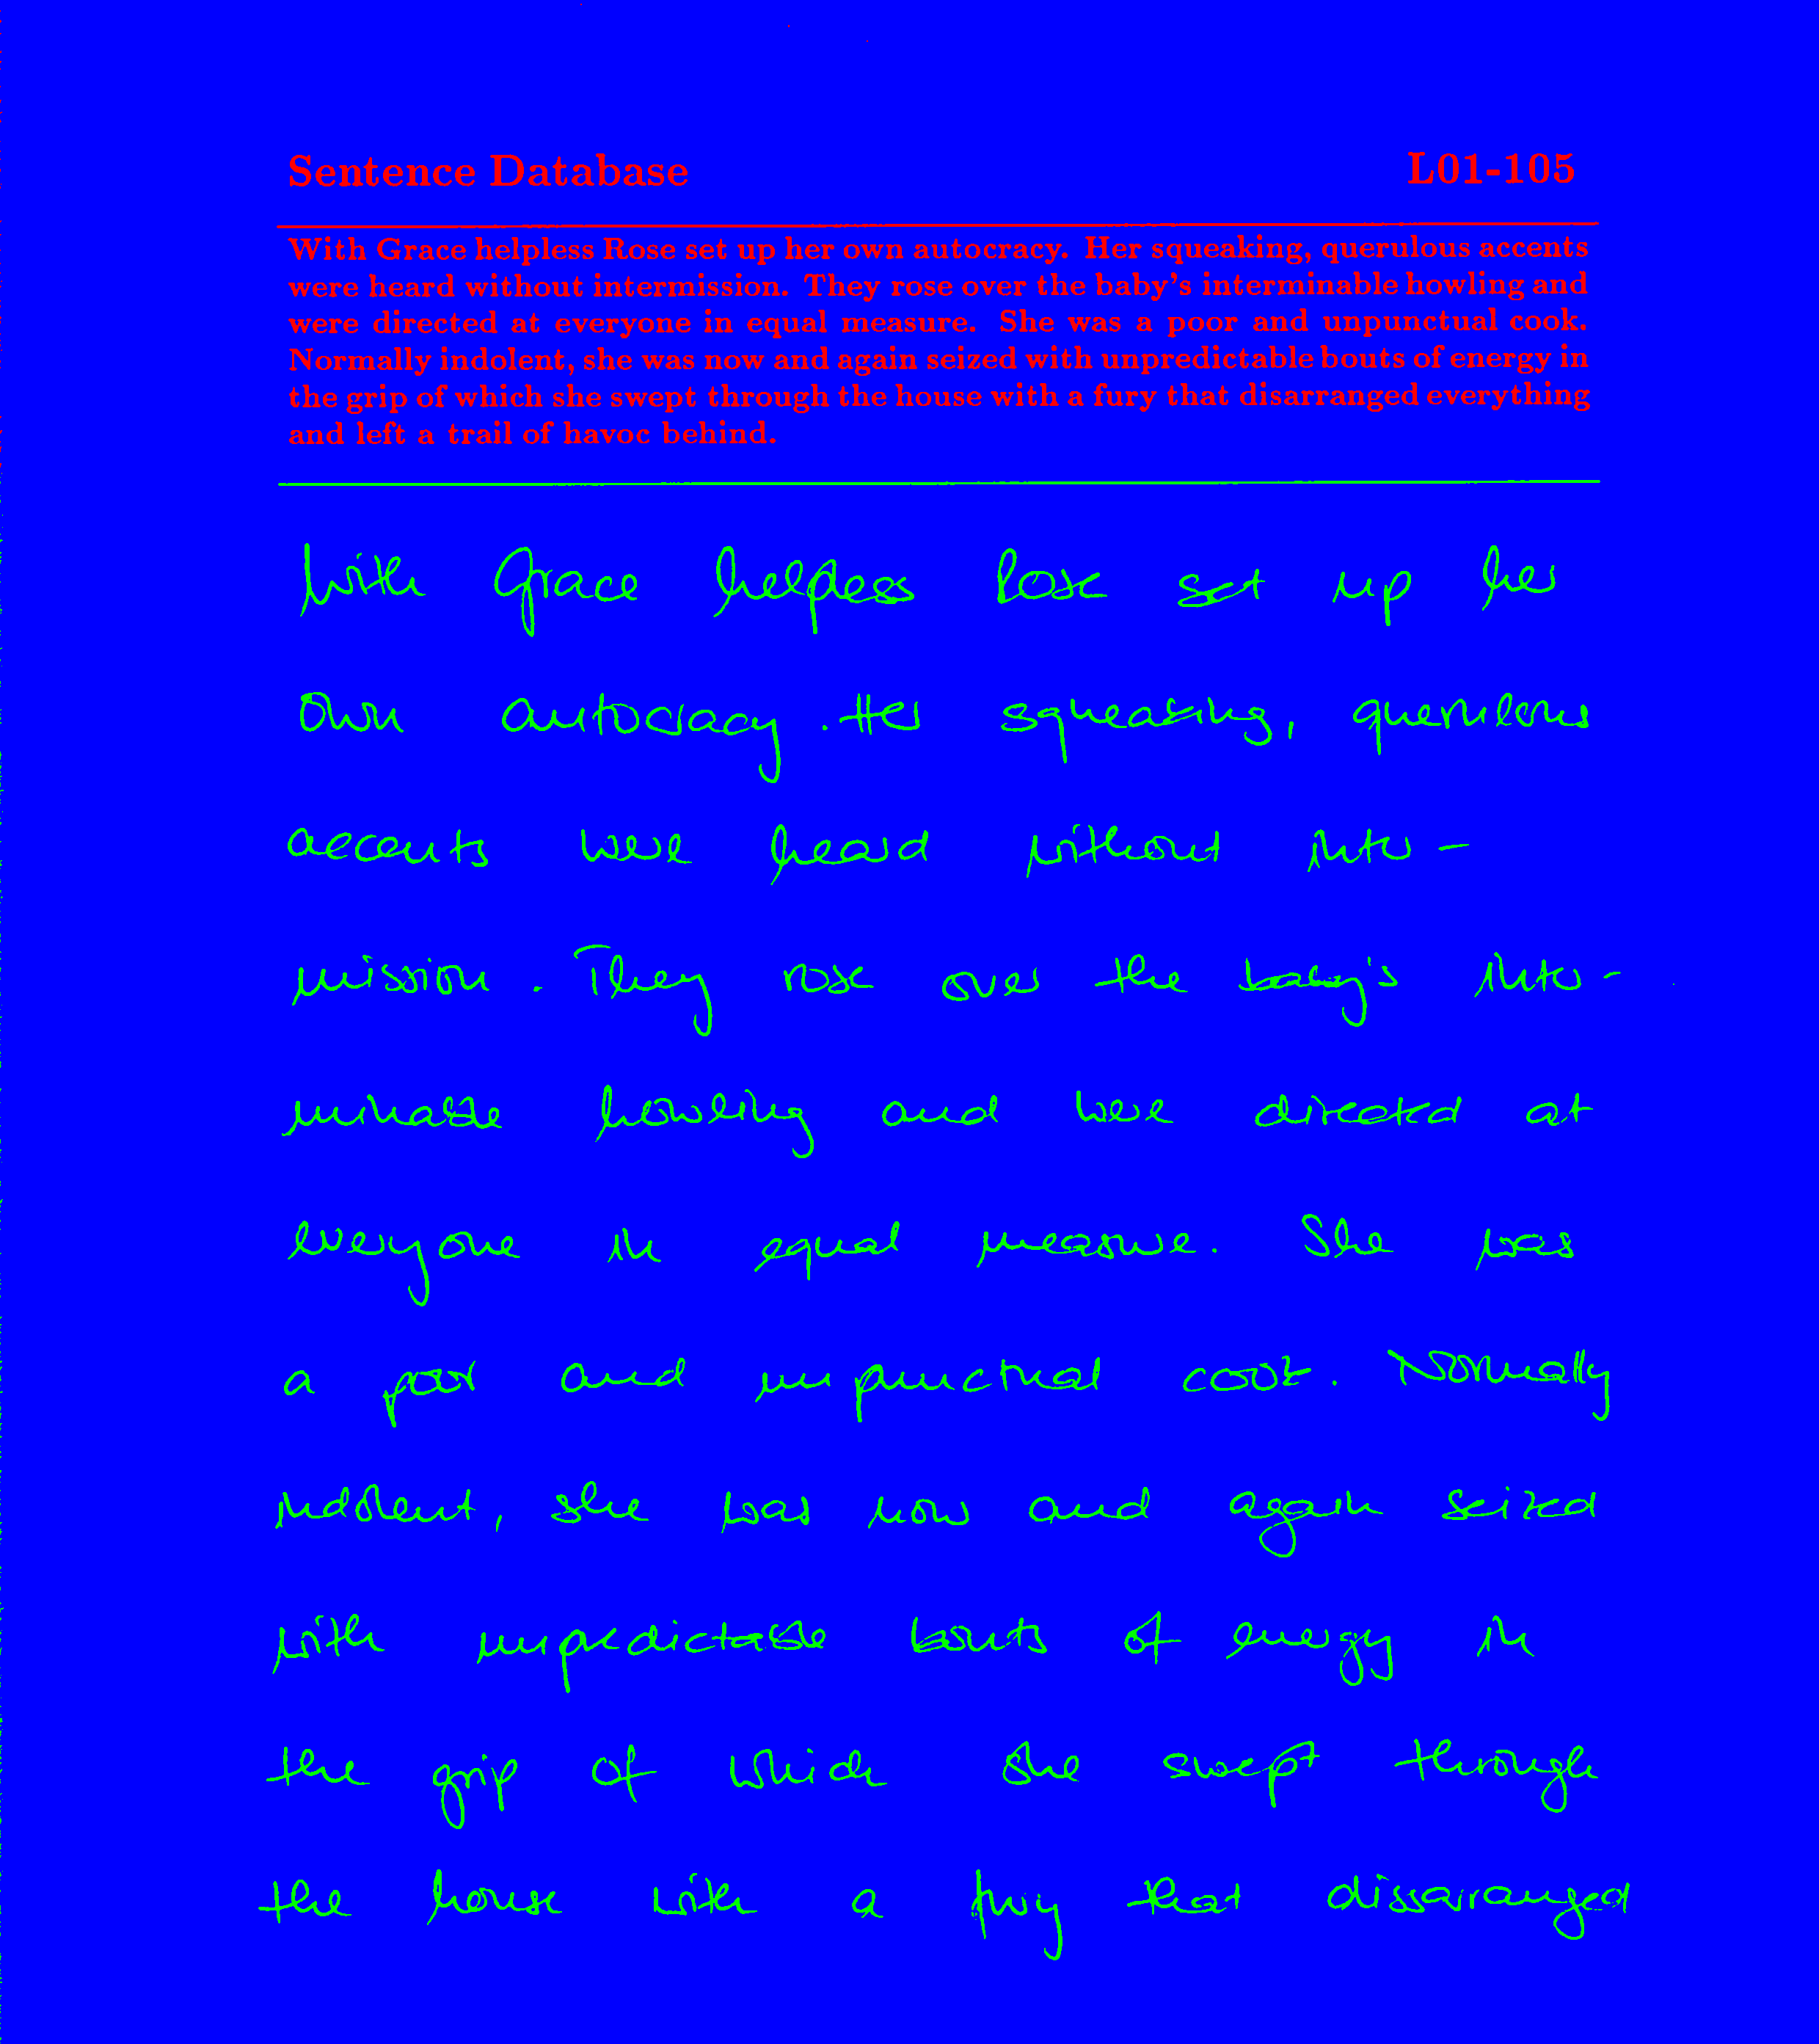 Sentence Database L01-105
With Grace helpless Rose set up her own autocracy. Her squeaking, querulous accents
were heard without intermission. They rose over the baby's interminable howling and
were directed at everyone in equal measure. She was a poor and unpunctual cook.
Normally indolent, she was now and again seized with unpredictable bouts of energy in
the grip of which she swept through the house with a fury that disarranged everything
and left a trail of havoc behind.
With Grace helpless Rose set up her
own autocracy. Her squeaking, querulous
accents were heard without inter-
mission. They rose over the baby's inter-
minable howling and were directed at
everyone in equal measure. She was
a poor and unpunctual cook. Normally
indolent, she was now and again seized
with unpredictable bouts of energy in
the grip of which she swept through
the house with a fury that dissarranged